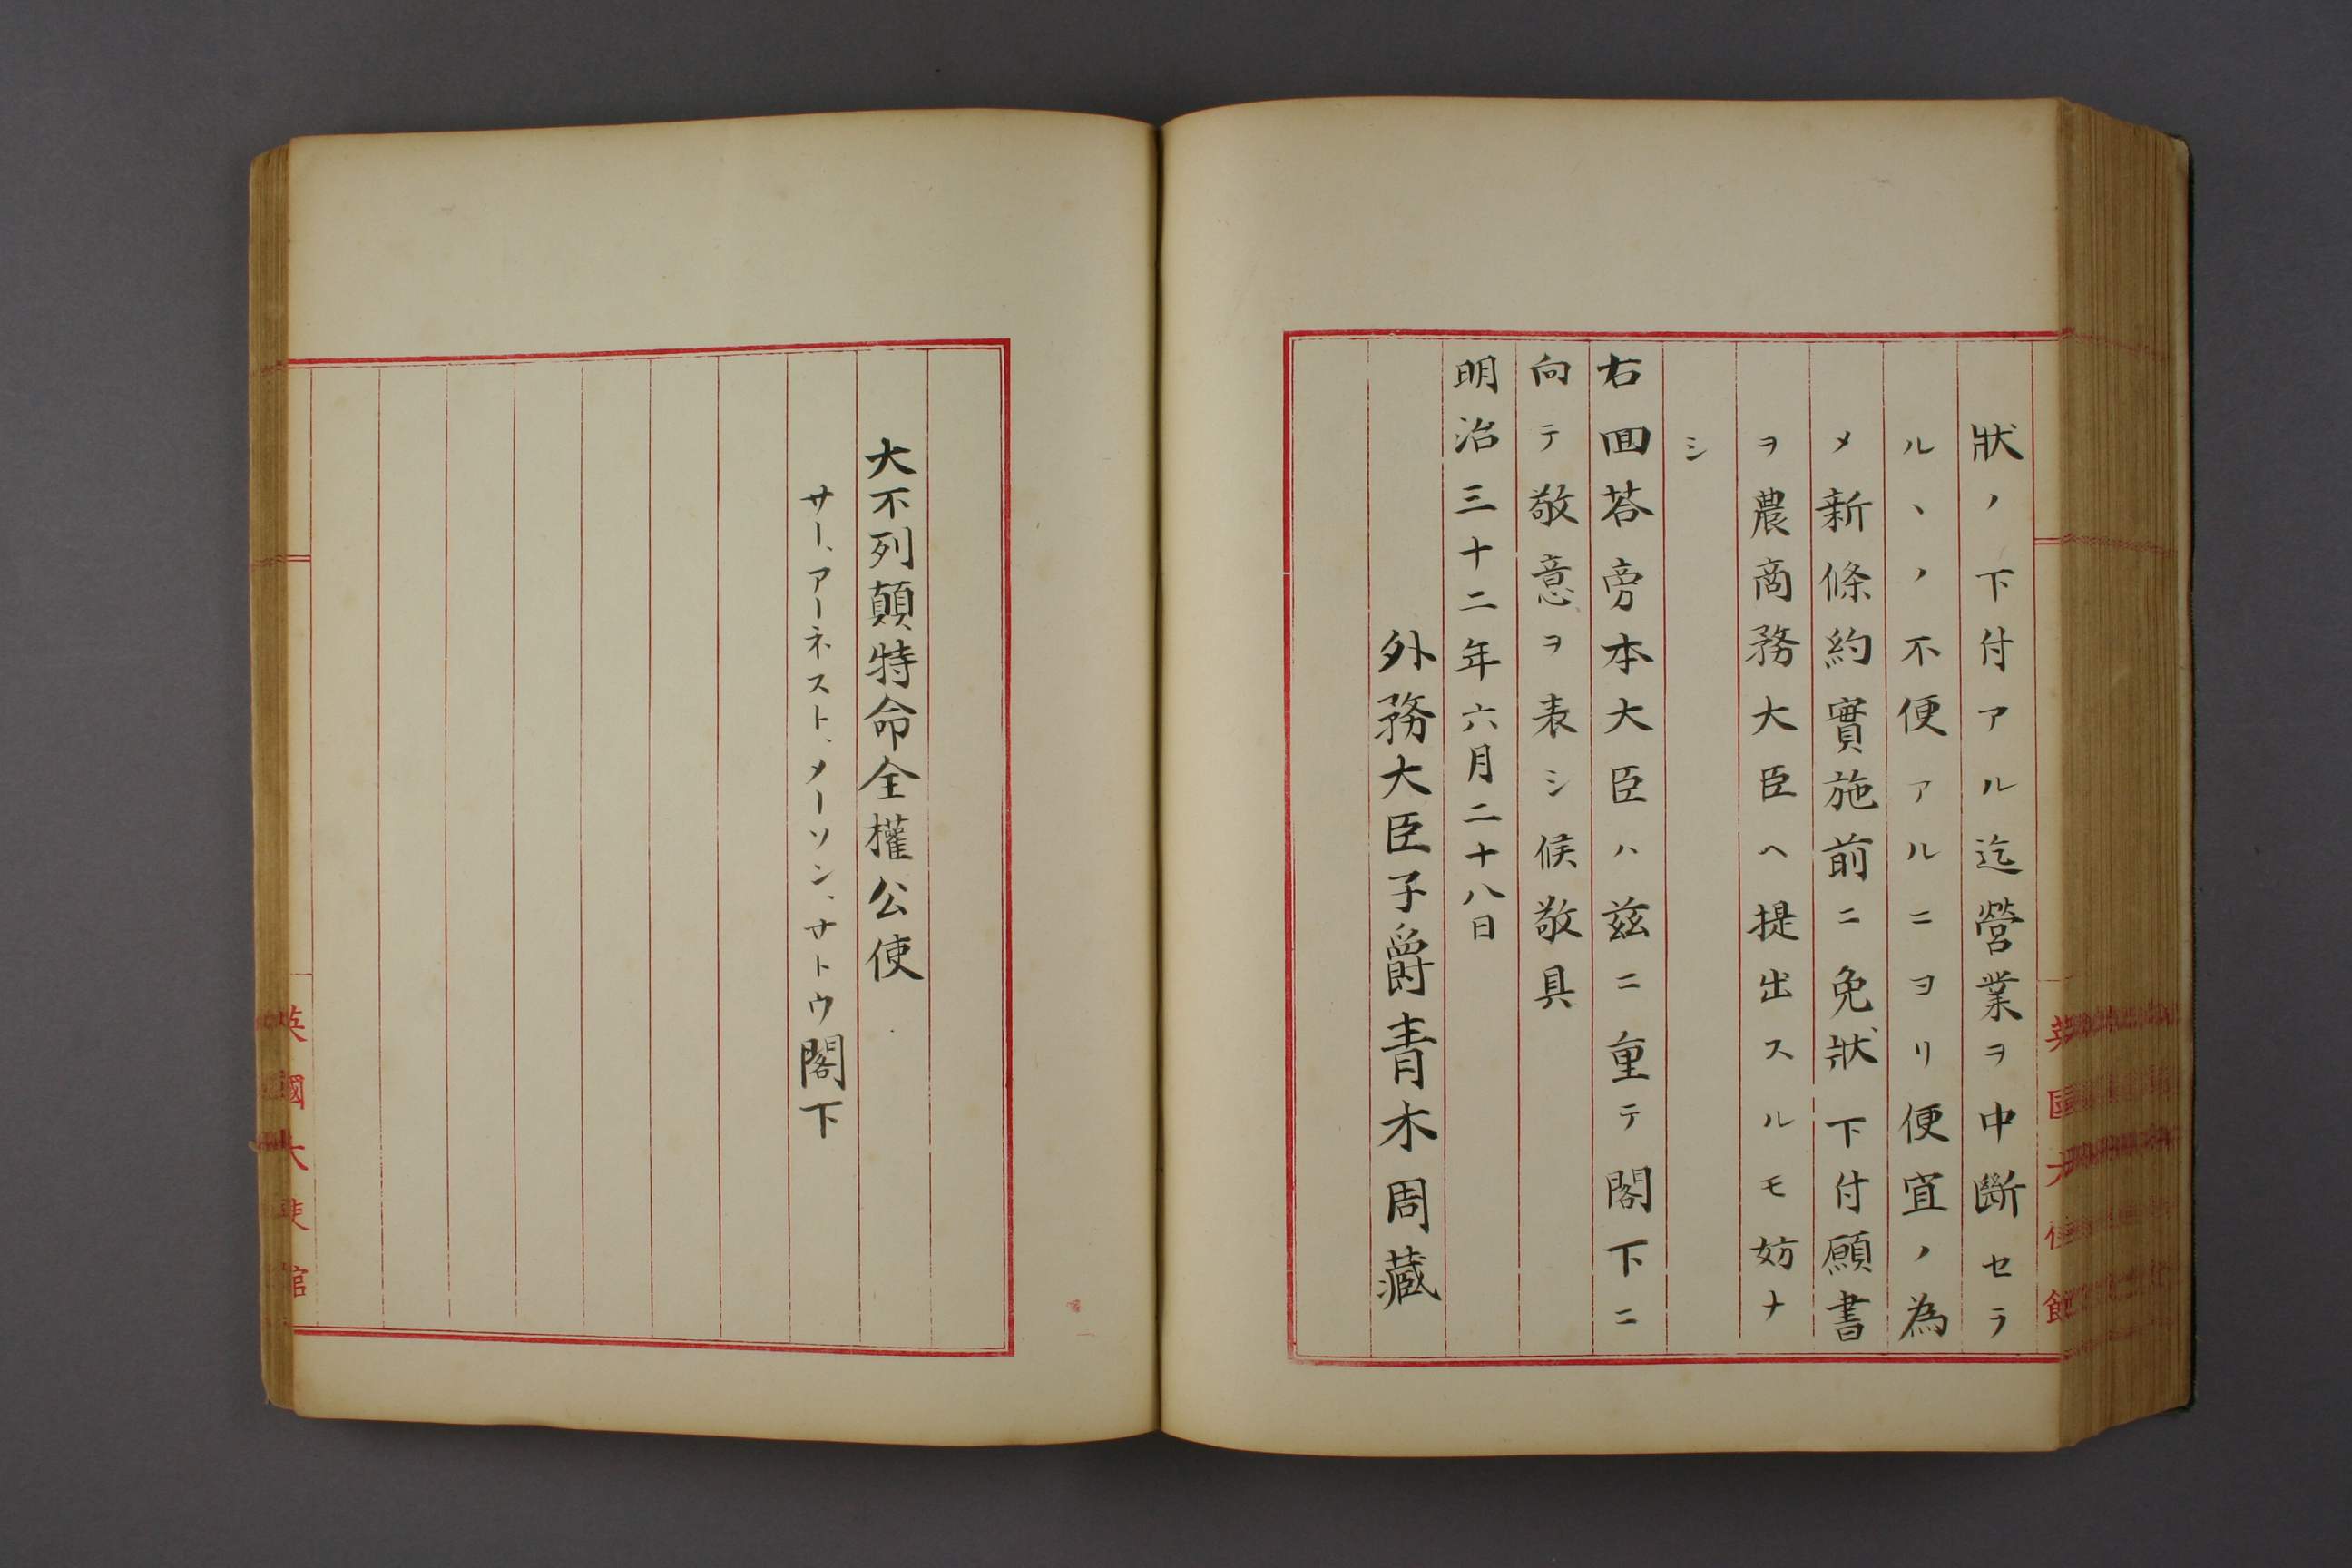 狀ノ下付アル迄營業ヲ中斷セラ
ルヽノ不便アルニヨリ便宜ノ為
メ新條約實施前ニ免狀下付願書
ヲ農商務大臣ヘ提出スルモ妨ナ
シ
右回荅旁本大臣ハ玆ニ重テ閣下ニ
向テ敬意ヲ表シ候敬具
明治三十二年六月二十八日
外務大臣子爵青木周藏
大不列顛特命全權公使
サー、アーネスト、メーソン、サトウ閣下
英國大使館